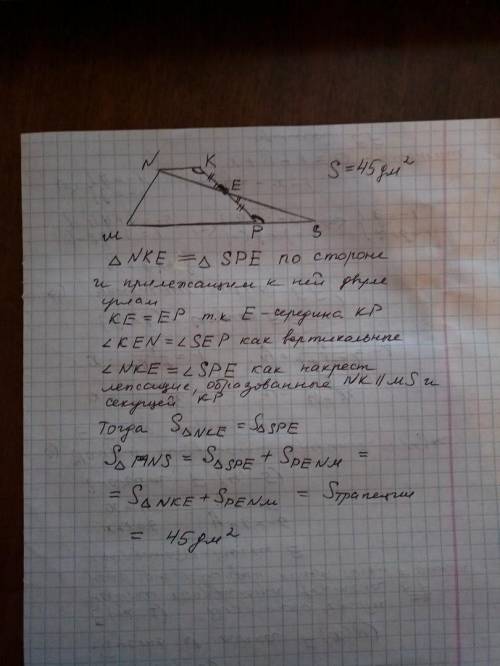 N K E S = 45 дм²
M P S
△ NKE = △ SPE по стороне
и прилежащим к ней двум
углам
KE = EP т.к E - середина KP
∠KEN = ∠SEP как вертикальные
∠NKE = ∠SPE как накрест
лежащие, образованные NK || MS и
секущей KP
Тогда S△NKE = S△SPE
S△MNS = S△SPE + SPENM =
= S△NKE + SPENM = Sтрапеции
= 45 дм²